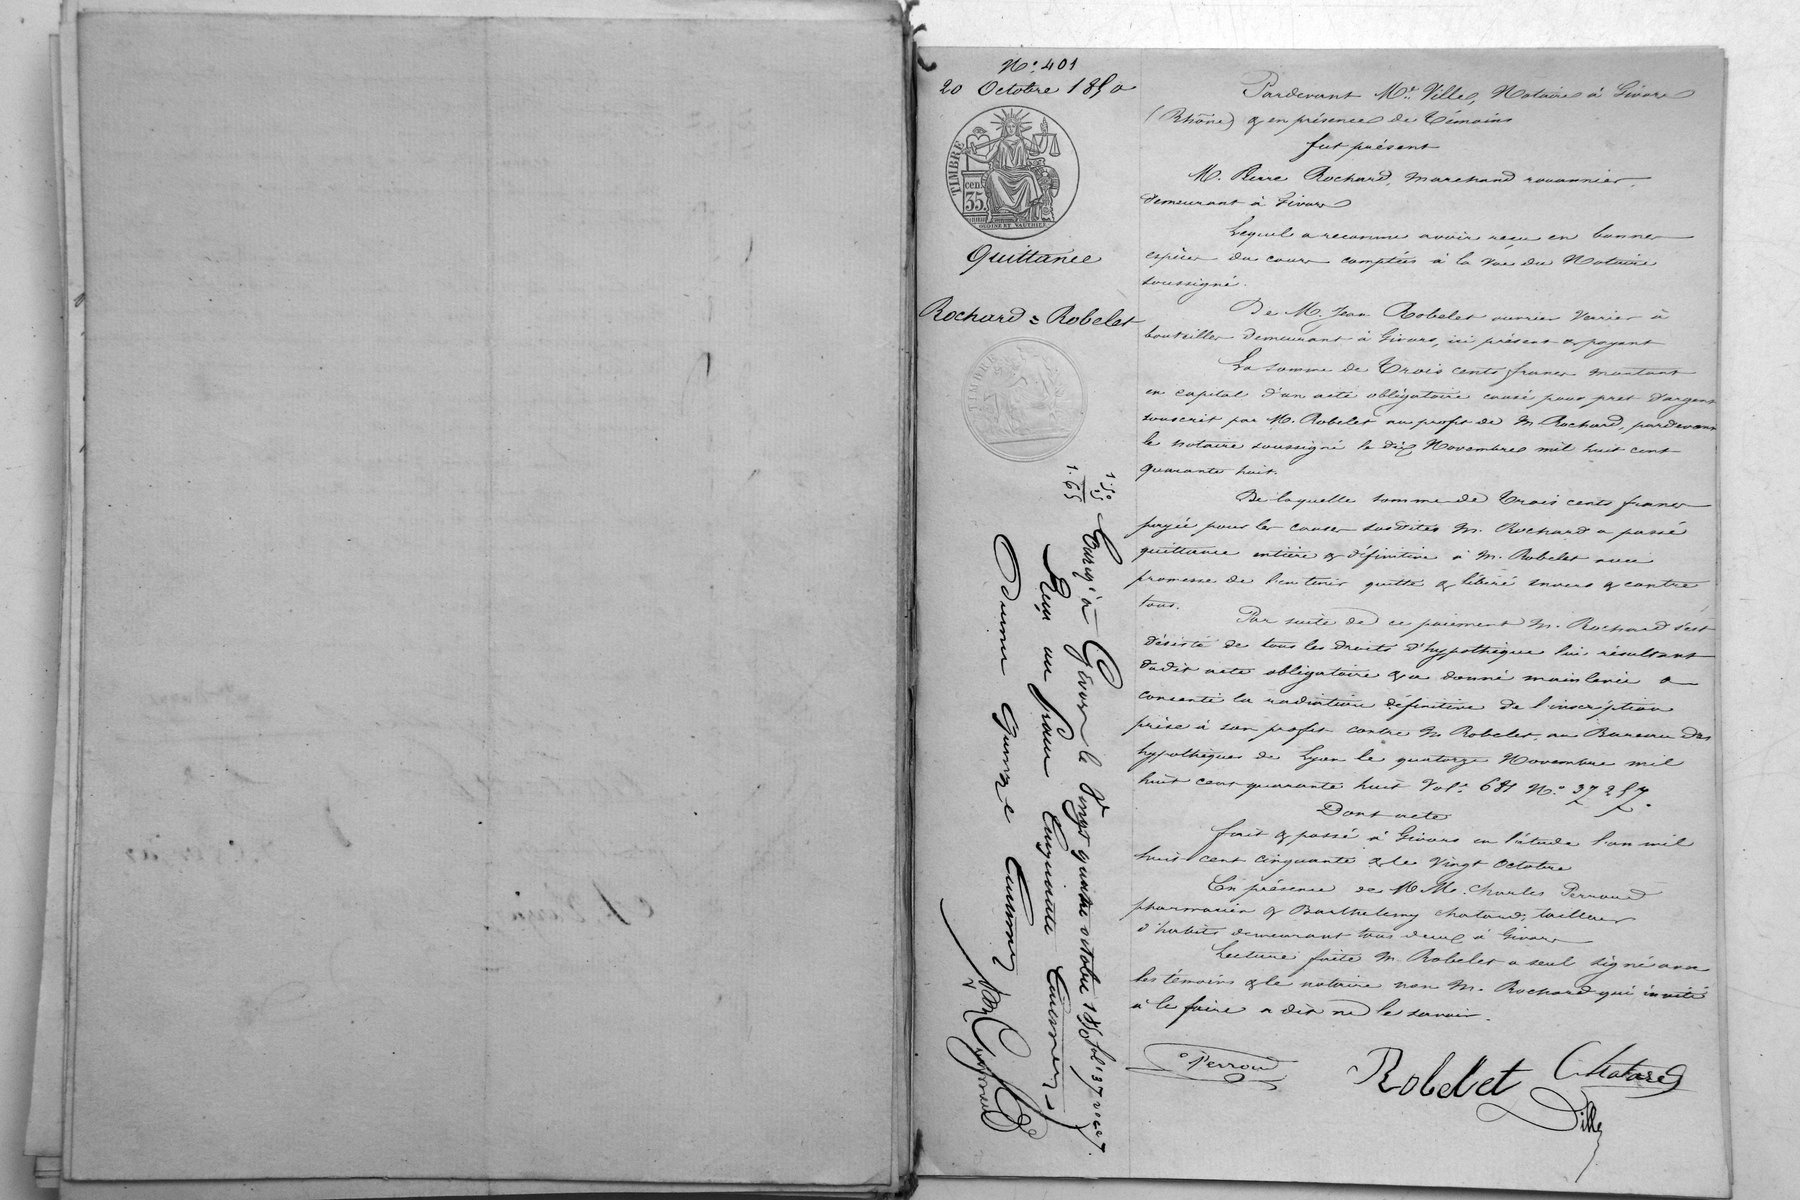 N.° 401
20 Octobre 1850
TIMBRE
cen.
35.
OUDINÉ ET VAUTHIER
Quittance
Rochard = Robelet
TIMBRE
1.50
15
1.65
Enregé à Givors le Vingt quatre octobre 1850 fol. 37
Reçu un franc Cinquante Centimes
Décime quinze Centimes
Pardevant Me. Ville, Notaire à Givors
(Rhône) & en présence de Témoins
fut présent
M. Pierre Rochard, marchand rouannier,
demeurant à Givors
Lequel a reconnu avoir reçu en bonnes
espèces du cours comptées à la vue du Notaire
soussigné.
De M. Jean Robelet ouvrier verrier à
bouteilles demeurant à Givors, ici présent & payant
La somme de Trois cents francs montant
en capital d'un acte obligatoire causé pour pret d'argent
souscrit par M. Robelet au profit de M. Rochard, pardevant
le notaire soussigné le dix Novembre mil huit cent
quarante huit.
De laquelle somme de Trois cents francs
payée pour les causes susdites M. Rochard a passé
quittance entière & définitive à M. Robelet avec
promesse de l'en tenir quitte & libéré envers & contre
tous.
Par suite de ce paiement M. Rochard s'est
désisté de tous les droits d'hypothèque lui résultant
dudit acte obligatoire & a donné mainlevée &
consenti la radiation définitive de l'inscription
prise à son profit contre M. Robelet, au Bureau des
hypothèques de Lyon le quatorze Novembre mil
huit cent quarante huit Vol. 681 N.° 37257.
Dont acte
fait & passé à Givors en l'étude l'an mil
huit cent cinquante & le vingt Octobre
En présence de M M. Charles Perroud
pharmacien & Barthelemy Chatard, tailleur
d'habits demeurant tous deux à Givors
Lecture faite M. Robelet a seul signé avec
les témoins & le notaire non M. Rochard qui invité
à le faire a dit ne le savoir.
C Perroud
Robelet
Chatard
Ville